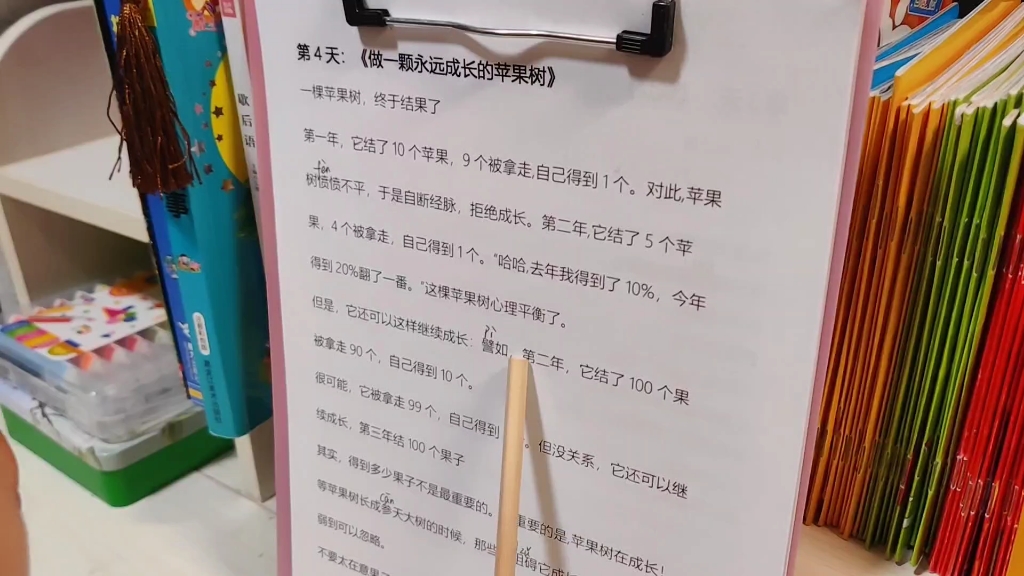 歇后语
第4天:《做一颗永远成长的苹果树》
一棵苹果树，终于结果了
第一年，它结了10个苹果，9个被拿走,自己得到1个。对此,苹果
fèn
树愤愤不平，于是自断经脉，拒绝成长。第二年,它结了5个苹
果，4个被拿走，自己得到1个。"哈哈,去年我得到了10%，今年
得到20%翻了一番。"这棵苹果树心理平衡了。
但是，它还可以这样继续成长：譬如，第二年，它结了100个果
被拿走90个，自己得到10个。
很可能，它被拿走99个，自己得到 。但没关系，它还可以继
续成长，第三年结100个果子
其实，得到多少果子不是最重要的。 重要的是,苹果树在成长!
cān
等苹果树长成参天大树的时候，那些 碍它成
弱到可以忽略。
不要太在意果